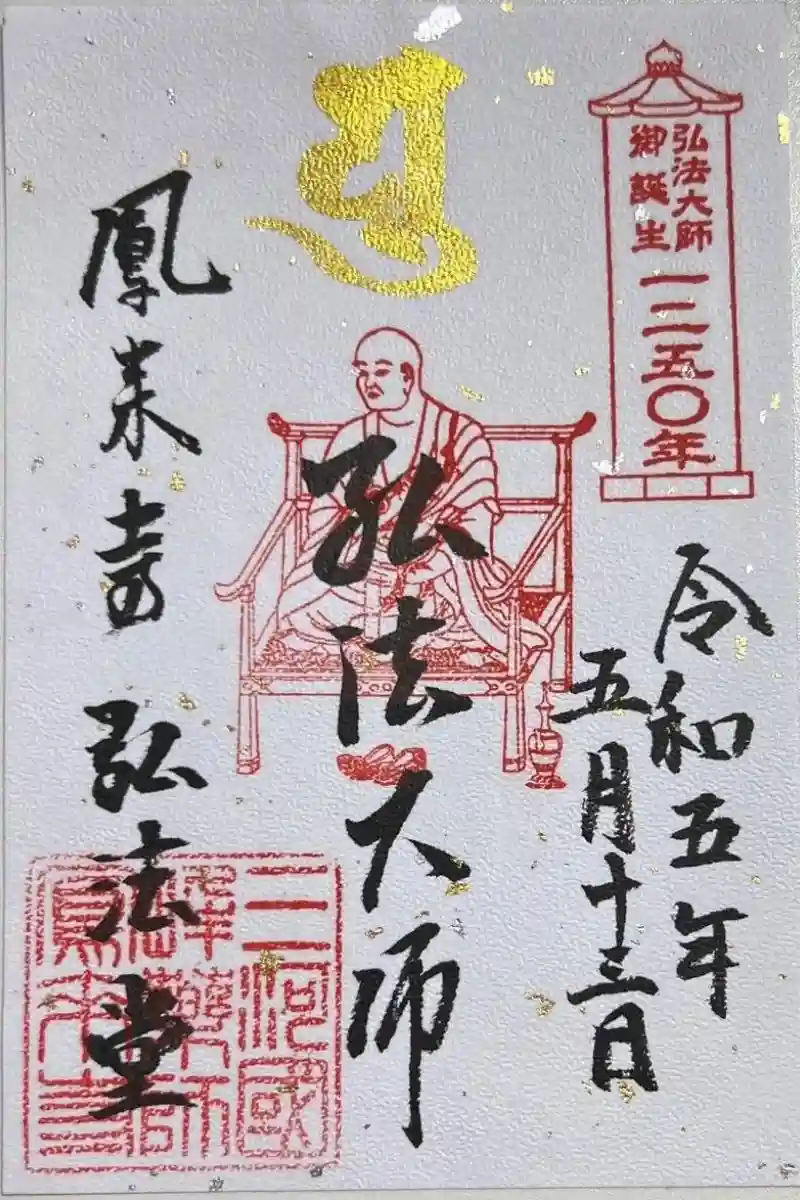 弘法大師
御誕生
一二五〇年
令和五年
五月十三日
弘法大師
鳳来寺 弘法堂
三河國
峯藥師
鳳来寺